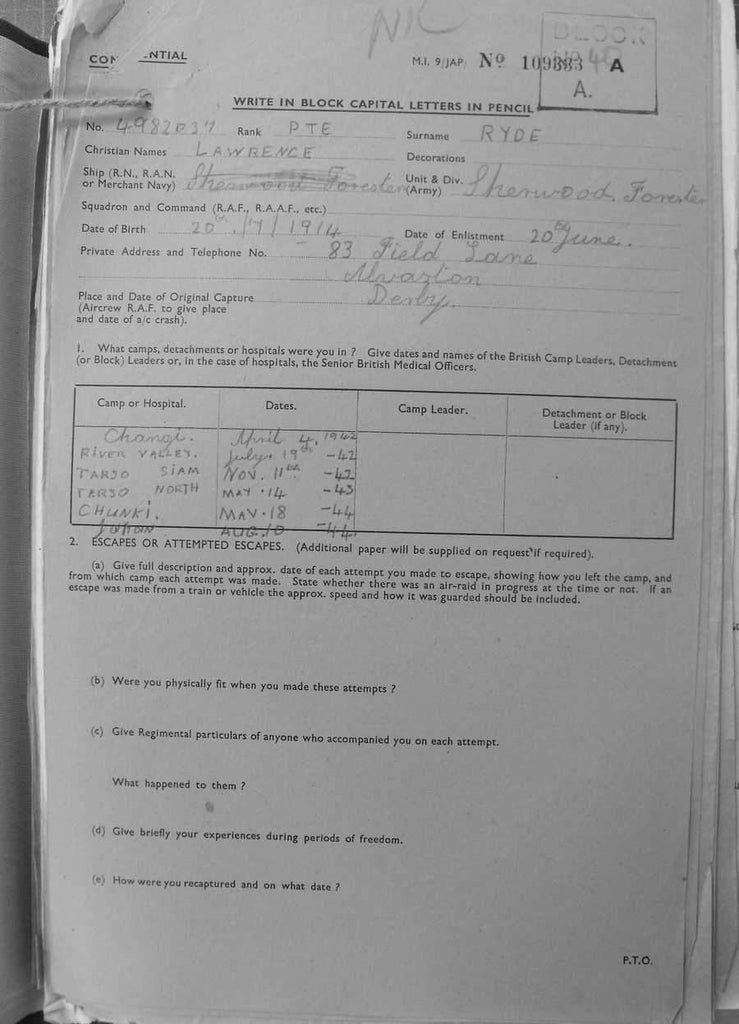 NIL
BLOCK
CON NTIAL
M.I. 9/JAP/ No 109883 A
A.
WRITE IN BLOCK CAPITAL LETTERS IN PENCIL
No. 4982037 Rank PTE Surname RYDE
Christian Names LAWRENCE Decorations
Ship (R.N., R.A.N. or Merchant Navy) Sherwood Forester Unit & Div. (Army) Sherwood Forester
Squadron and Command (R.A.F., R.A.A.F., etc.)
Date of Birth 20th /7/1914 Date of Enlistment 20 June.
Private Address and Telephone No. - 83 Field Lane
Alvaston
Place and Date of Original Capture Derby.
(Aircrew R.A.F. to give place
and date of a/c crash).
1. What camps, detachments or hospitals were you in ? Give dates and names of the British Camp Leaders, Detachment
(or Block) Leaders or, in the case of hospitals, the Senior British Medical Officers.
Camp or Hospital. Dates. Camp Leader. Detachment or Block Leader (if any).
Changi. April 4, 1942
RIVER VALLEY. July 19th -42
TARSO SIAM NOV. 11th -42
TARSO NORTH MAY .14 -43
CHUNKI. MAY.18 -44
AUG.10 -44.
2. ESCAPES OR ATTEMPTED ESCAPES. (Additional paper will be supplied on request if required).
(a) Give full description and approx. date of each attempt you made to escape, showing how you left the camp, and
from which camp each attempt was made. State whether there was an air-raid in progress at the time or not. If an
escape was made from a train or vehicle the approx. speed and how it was guarded should be included.
(b) Were you physically fit when you made these attempts ?
(c) Give Regimental particulars of anyone who accompanied you on each attempt.
What happened to them ?
(d) Give briefly your experiences during periods of freedom.
(e) How were you recaptured and on what date ?
P.T.O.